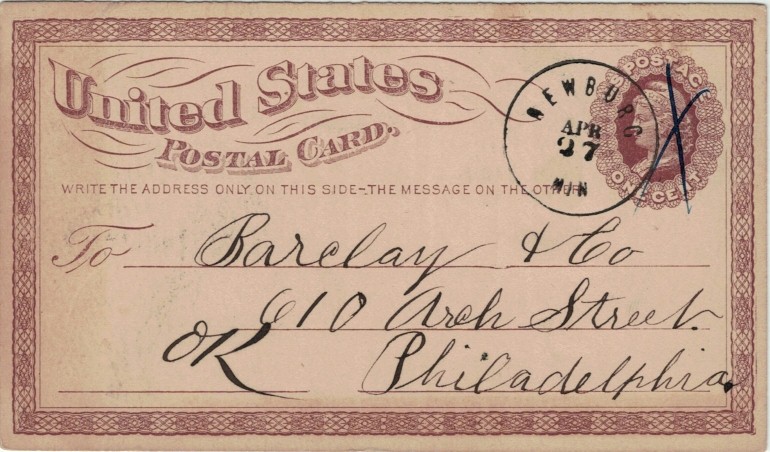 United States
POSTAL CARD.
WRITE THE ADDRESS ONLY ON THIS SIDE-THE MESSAGE ON THE OTHER
POSTAGE
ONE CENT
NEWBURG
APR
27
MIN
To Barclay & Co
610 Arch Street.
OK
Philadelphia.